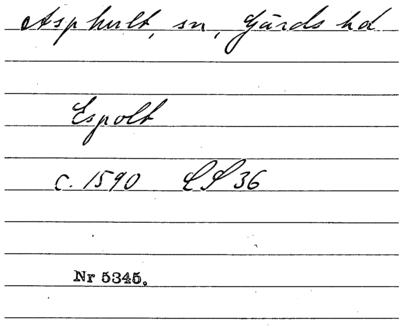 Asphult, sn, Gärds hd
Espolt
c. 1590 LS 36
Nr 5345.